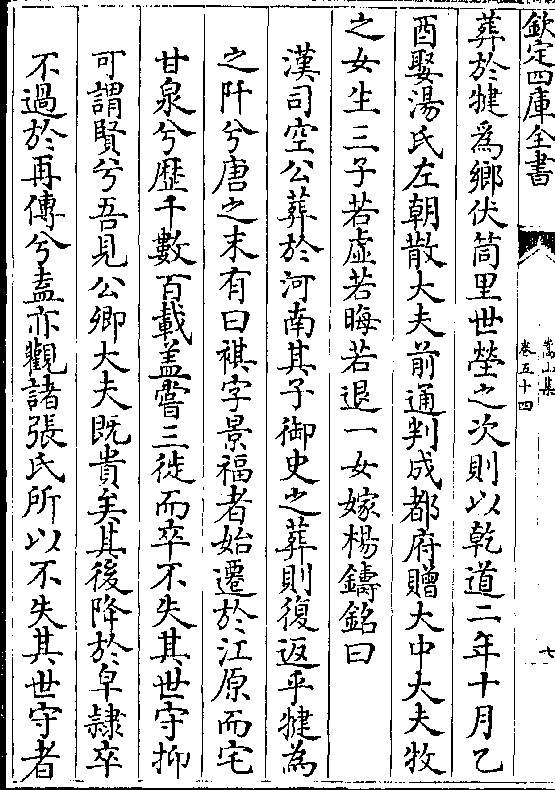 欽定四庫全書
嵩山集
卷五十四
七
葬於犍為鄉伏筒里世塋之次則以乾道二年十月乙
酉娶湯氏左朝散大夫前通判成都府贈大中大夫牧
之女生三子若虛若晦若退一女嫁楊鑄銘曰
漢司空公葬於河南其子御史之葬則復返乎犍為
之阡兮唐之末有曰祺字景福者始遷於江原而宅
甘泉兮歴千數百載盖嘗三徙而卒不失其世守抑
可謂賢兮吾見公卿大夫既貴矣其後降於皁隷卒
不過於再傳兮盍亦觀諸張氏所以不失其世守者